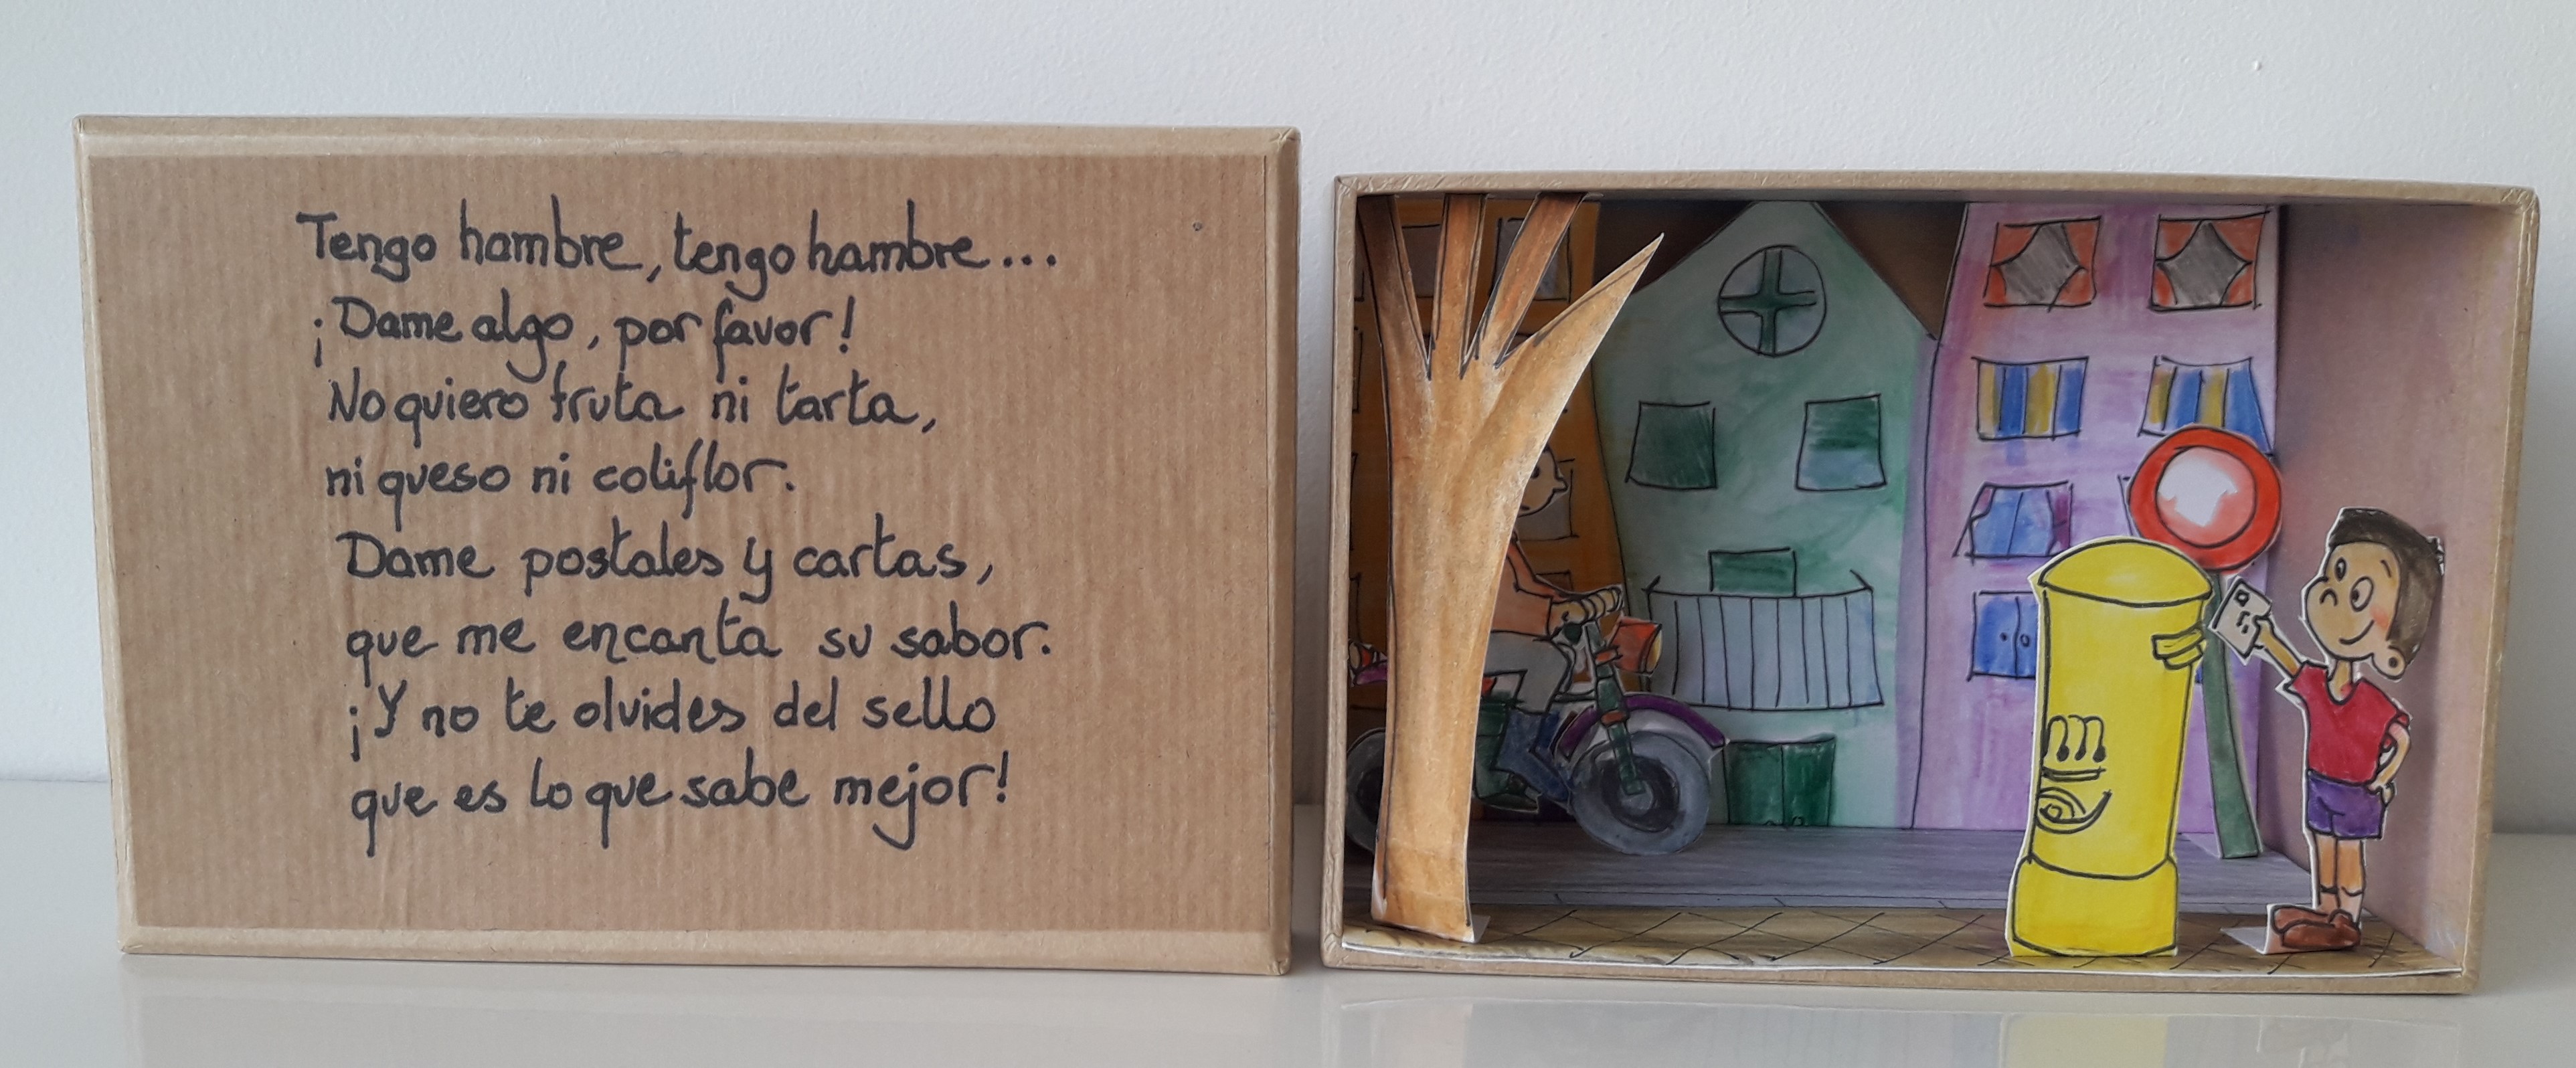 Tengo hambre, tengo hambre...
¡Dame algo, por favor!
No quiero fruta ni tarta,
ni queso ni coliflor.
Dame postales y cartas,
que me encanta su sabor.
¡Y no te olvides del sello
que es lo que sabe mejor!